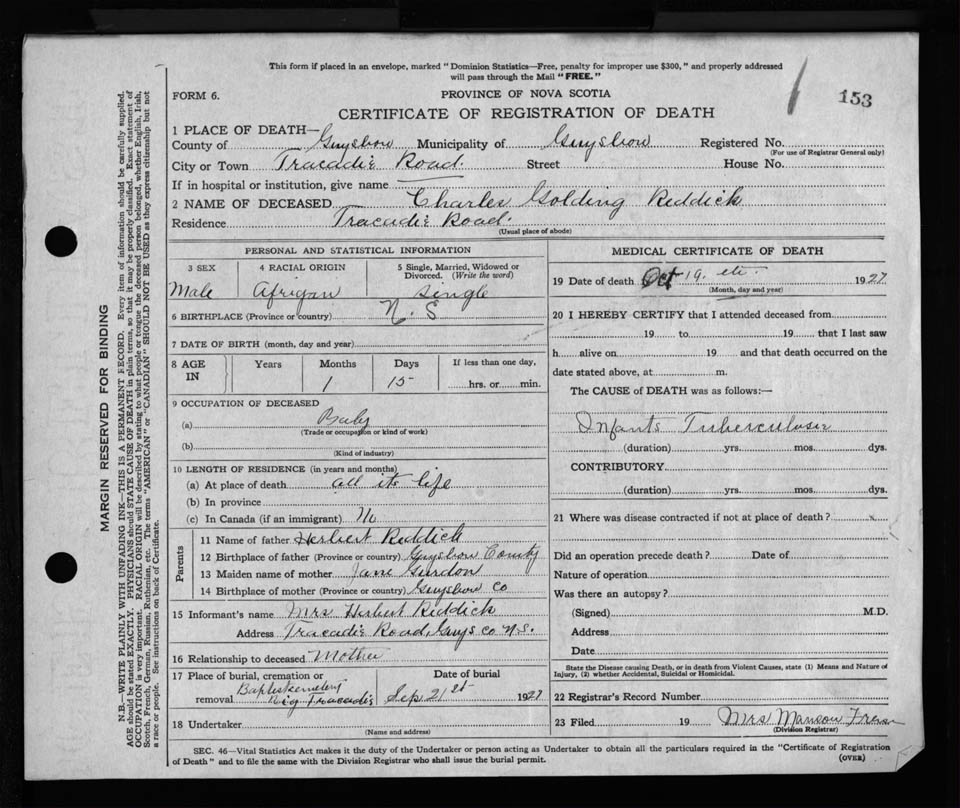 This form if placed in an envelope, marked "Dominion Statistics—Free, penalty for improper use $300," and properly addressed
will pass through the Mail "FREE."
FORM 6.
PROVINCE OF NOVA SCOTIA
153
CERTIFICATE OF REGISTRATION OF DEATH
1 PLACE OF DEATH—
County of Guysboro Municipality of Guysboro Registered No.
(For use of Registrar General only)
City or Town Tracadie Road. Street House No.
If in hospital or institution, give name
2 NAME OF DECEASED Charles Golding Reddick
Residence Tracadie Road.
(Usual place of abode)
PERSONAL AND STATISTICAL INFORMATION
3 SEX 4 RACIAL ORIGIN 5 Single, Married, Widowed or
Divorced. (Write the word)
Male Afrigan Single
6 BIRTHPLACE (Province or country) N. S
7 DATE OF BIRTH (month, day and year)
8 AGE Years Months Days If less than one day,
IN 1 15 hrs. or min.
9 OCCUPATION OF DECEASED
(a) Baby
(Trade or occupation or kind of work)
(b)
(Kind of industry)
10 LENGTH OF RESIDENCE (in years and months)
(a) At place of death all its life
(b) In province
(c) In Canada (if an immigrant) No
Parents
11 Name of father Herbert Reddick
12 Birthplace of father (Province or country) Guysboro County
13 Maiden name of mother Jane Gurdon
14 Birthplace of mother (Province or country) Guysboro Co
15 Informant's name Mrs Herbert Reddick
Address Tracadie Road, Guys co N.S.
16 Relationship to deceased Mother
17 Place of burial, cremation or Date of burial
removal Baptist cemetery
Big Tracadie Sep 21st 1927
18 Undertaker
(Name and address)
MEDICAL CERTIFICATE OF DEATH
19 Date of death Oct 19. 1927
(Month, day and year)
20 I HEREBY CERTIFY that I attended deceased from
19 to 19 that I last saw
h alive on 19 and that death occurred on the
date stated above, at m.
The CAUSE of DEATH was as follows:—
Infants Tuberculosis
(duration) yrs. mos. dys.
CONTRIBUTORY
(duration) yrs. mos. dys.
21 Where was disease contracted if not at place of death?
Did an operation precede death? Date of
Nature of operation
Was there an autopsy?
(Signed) M.D.
Address
Date
State the Disease causing Death, or in death from Violent Causes, state (1) Means and Nature of
Injury, (2) whether Accidental, Suicidal or Homicidal.
22 Registrar's Record Number
23 Filed 19 Mrs Manson
(Division Registrar)
SEC. 46—Vital Statistics Act makes it the duty of the Undertaker or person acting as Undertaker to obtain all the particulars required in the "Certificate of Registration
of Death" and to file the same with the Division Registrar who shall issue the burial permit.
(OVER)
MARGIN RESERVED FOR BINDING
N.B.—WRITE PLAINLY WITH UNFADING INK—THIS IS A PERMANENT RECORD. Every item of information should be carefully supplied.
AGE should be stated EXACTLY. PHYSICIANS should STATE CAUSE OF DEATH in plain terms, so that it may be properly classified. Exact statement of
OCCUPATION is very important. RACIAL ORIGIN will be described by stating to what people or tongue the deceased person belonged, whether English, Irish,
Scotch, French, German, Russian, Ruthenian, etc. The terms "AMERICAN" or "CANADIAN" SHOULD NOT BE USED as they express citizenship but not
a race or people. See instructions on back of Certificate.